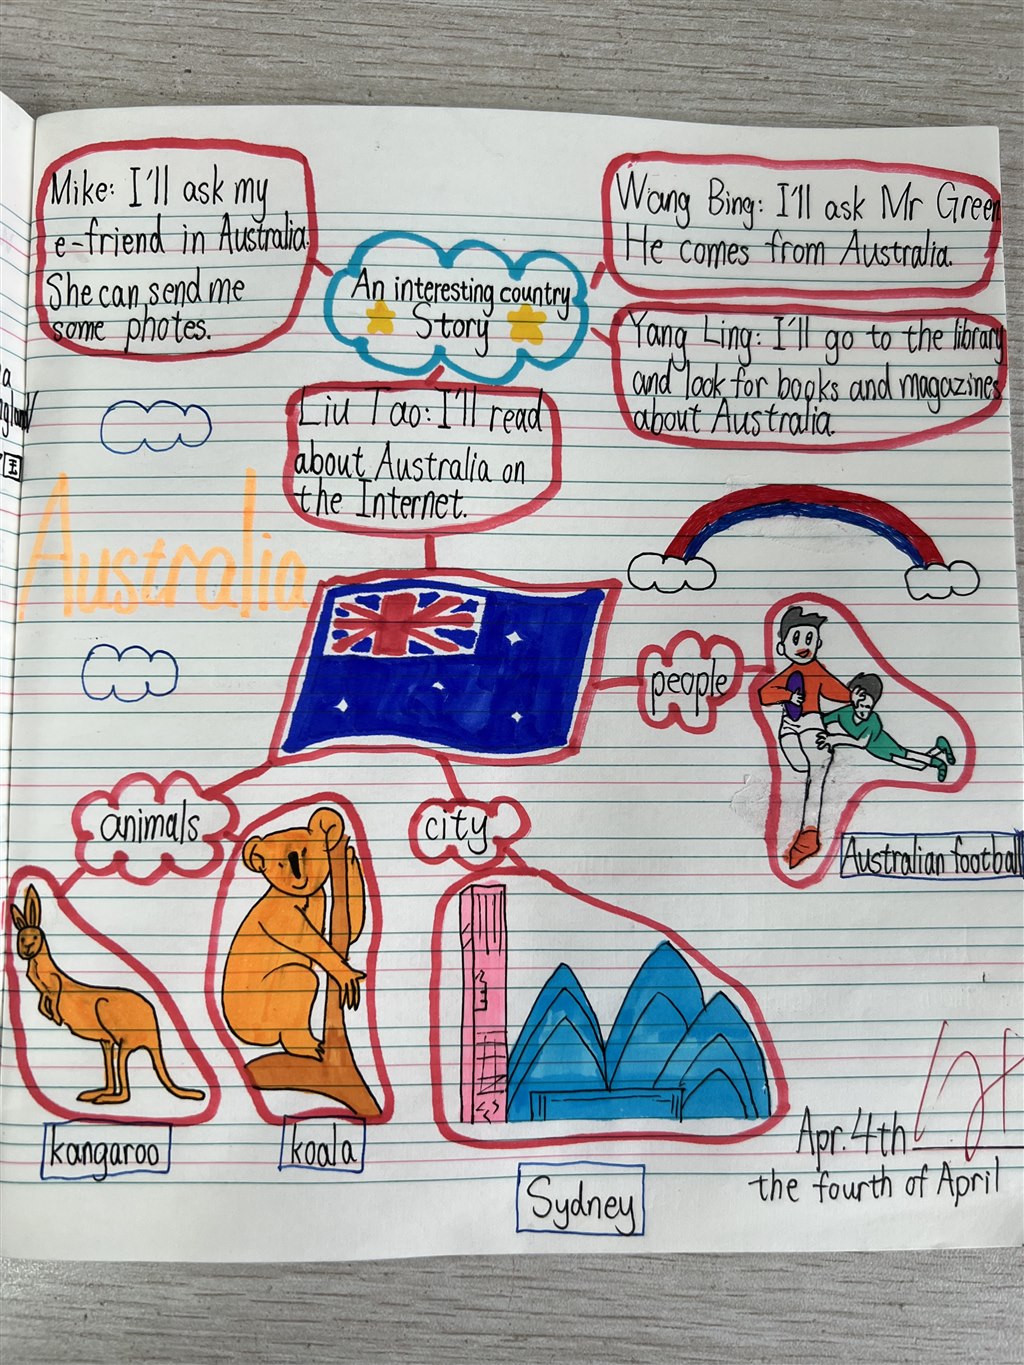 Mike: I'll ask my
e-friend in Australia.
She can send me
some photes.
An interesting country
Story
Wang Bing: I'll ask Mr Green
He comes from Australia.
Yang Ling: I'll go to the library
and look for books and magazines
about Australia.
Liu Tao: I'll read
about Australia on
the Internet.
Australia
people
Australian football
animals
city
kangaroo
koala
Sydney
Apr. 4th
the fourth of April